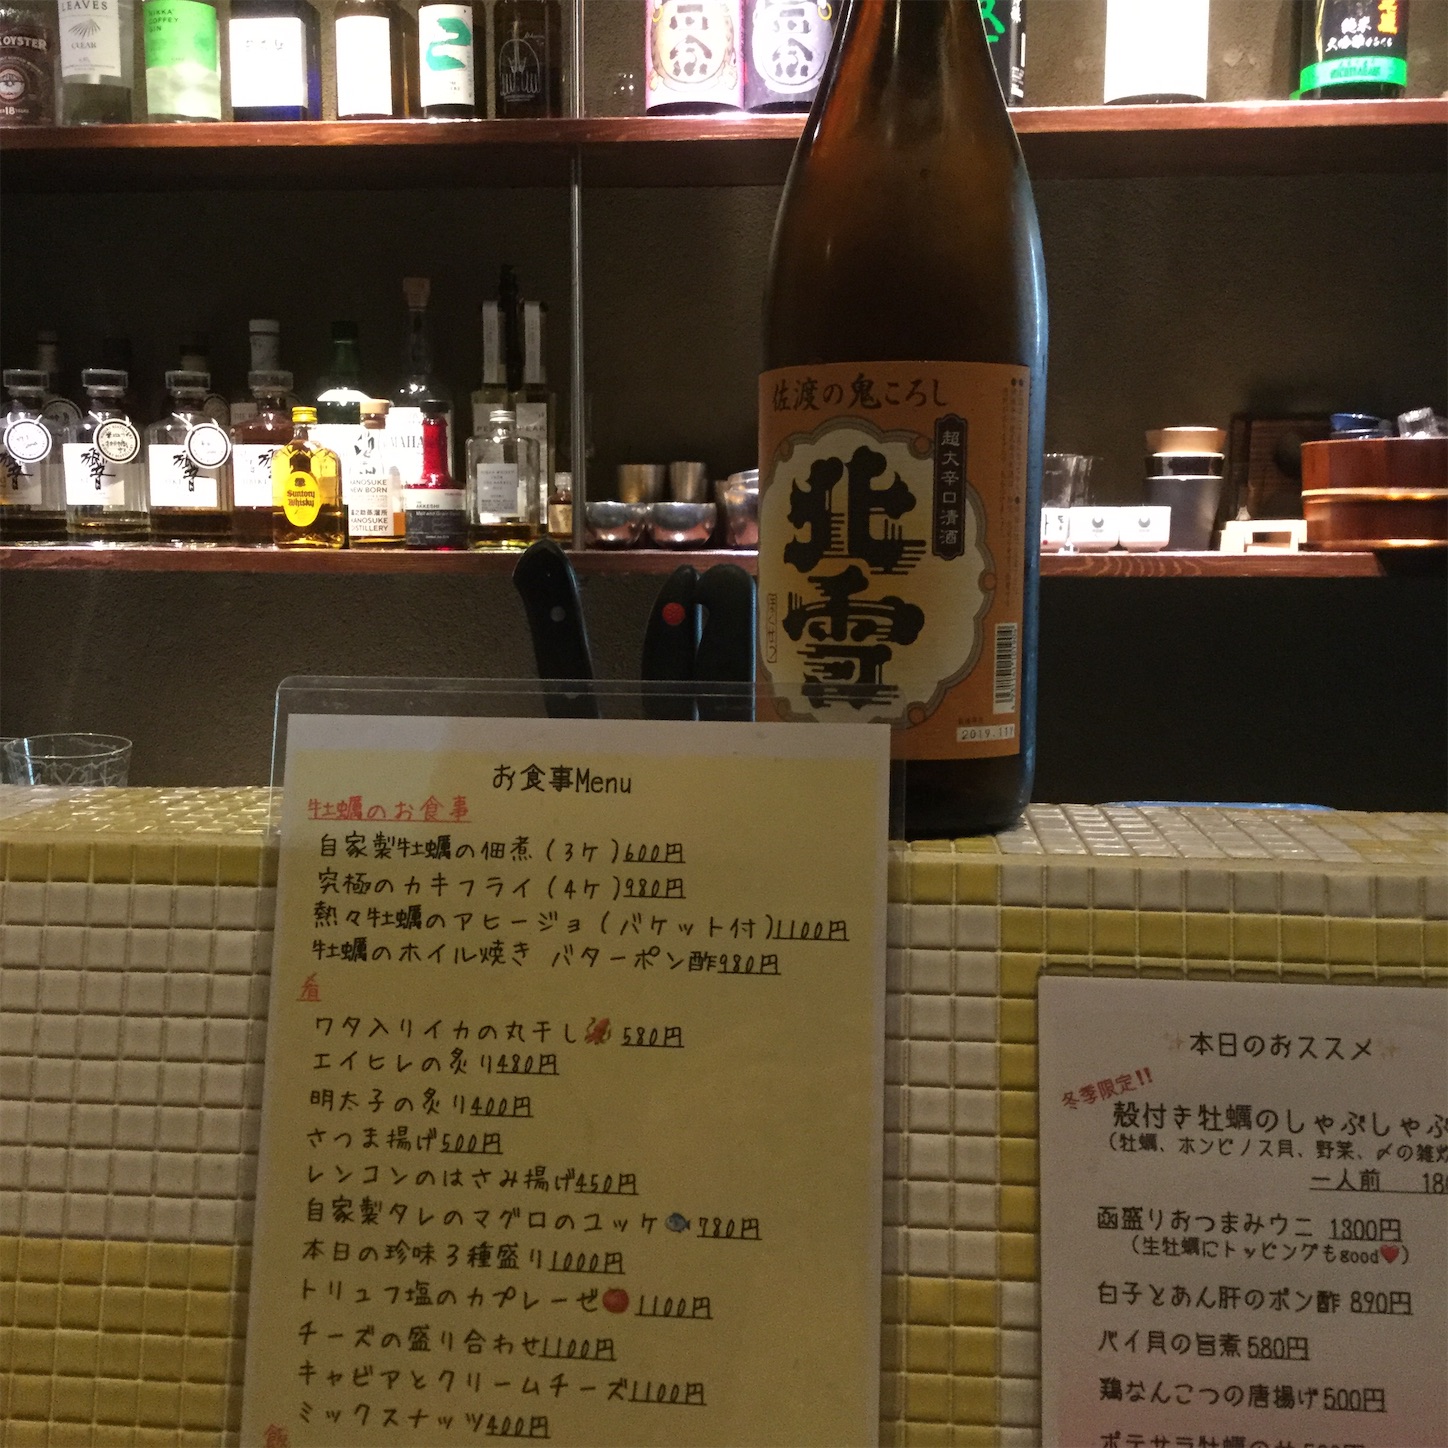 OYSTER
18
LEAVES
CLEAR
COFFEY
GIN
純米
大吟醸
響
響
響
響
Suntory
Whisky
KANOSUKE
NEW BORN
嘉之助蒸溜所
KANOSUKE
DISTILLERY
AKKESHI
佐渡の鬼ころし
超大辛口清酒
北雪
2019.11
お食事Menu
牡蠣のお食事
自家製牡蠣の佃煮(3ケ)600円
究極のカキフライ(4ケ)980円
熱々牡蠣のアヒージョ(バケット付)1100円
牡蠣のホイル焼き バターポン酢980円
肴
ワタ入りイカの丸干し🦑 580円
エイヒレの炙り480円
明太子の炙り400円
さつま揚げ500円
レンコンのはさみ揚げ450円
自家製タレのマグロのユッケ🐟780円
本日の珍味3種盛り1000円
トリュフ塩のカプレーゼ🍅1100円
チーズの盛り合わせ1100円
キャビアとクリームチーズ1100円
ミックスナッツ400円
飯
✨本日のおススメ✨
冬季限定!!
殻付き牡蠣のしゃぶしゃぶ
(牡蠣、ホンビノス貝、野菜、〆の雑炊
一人前 180
函盛りおつまみウニ 1300円
(生牡蠣にトッピングもgood❤)
白子とあん肝のポン酢 890円
バイ貝の旨煮 580円
鶏なんこつの唐揚げ500円
ポテサラ牡蠣の